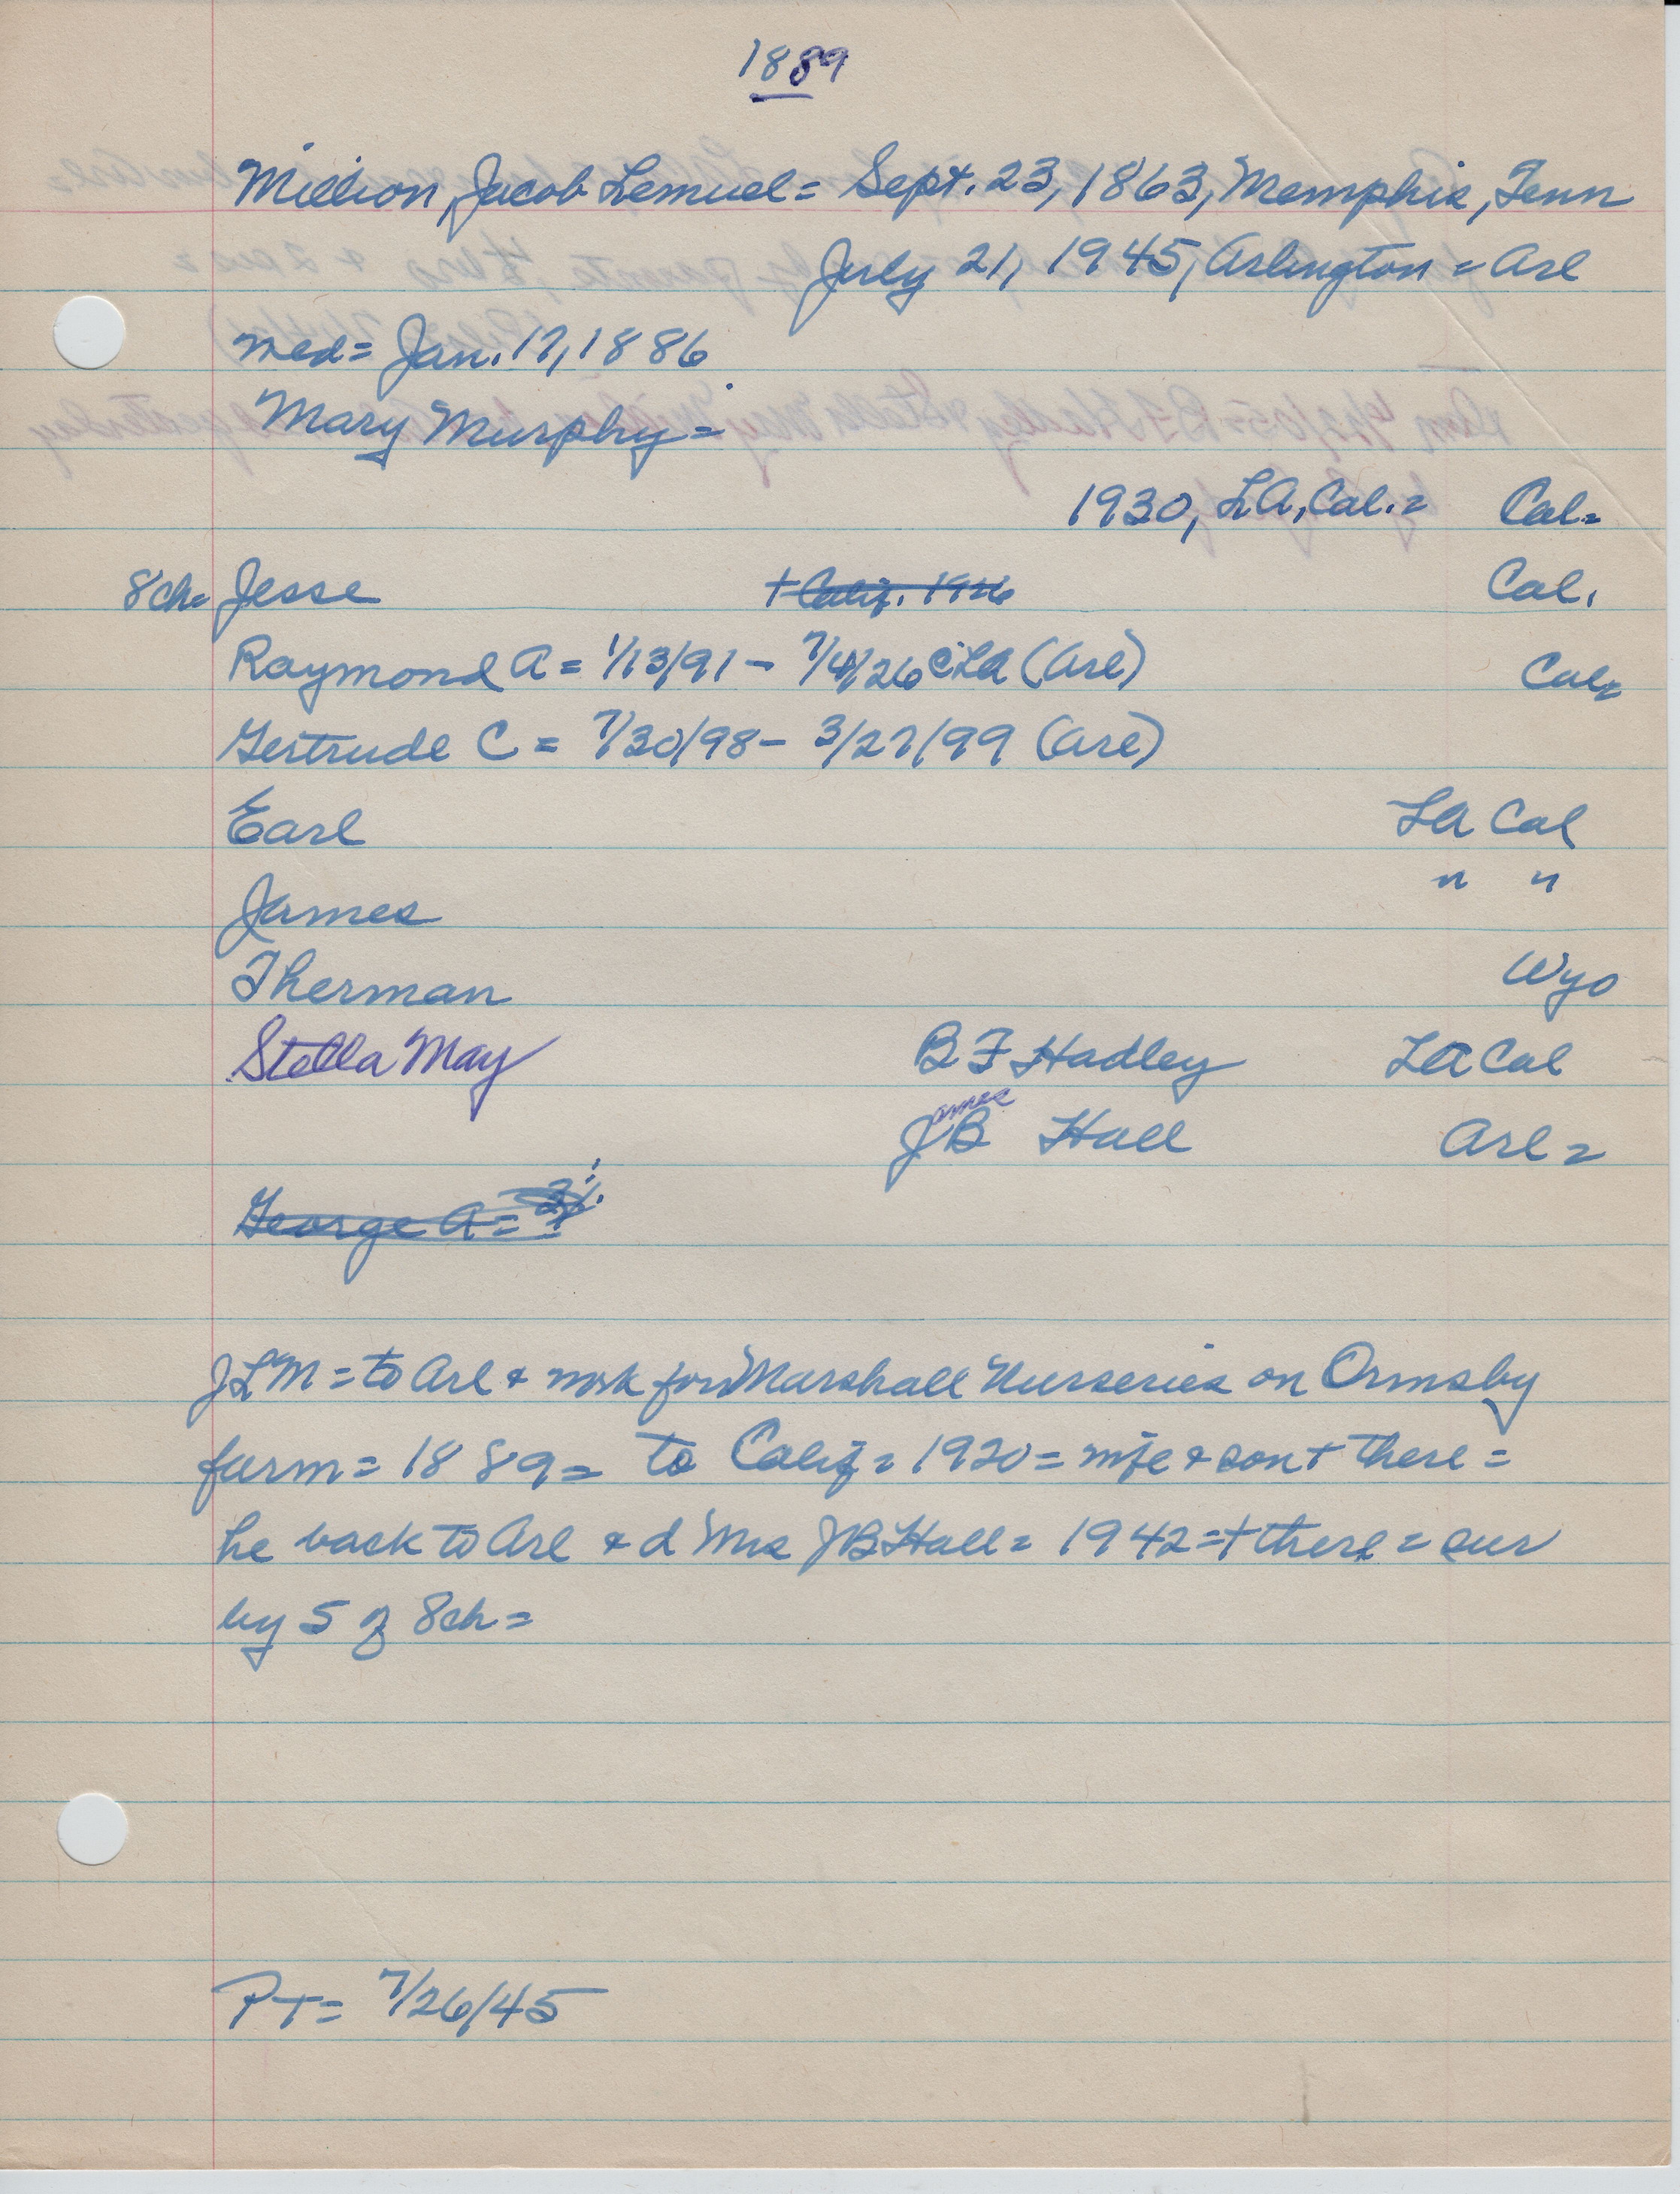 1889
Million, Jacob Lemuel = Sept. 23, 1863, Memphis, Tenn
July 21, 1945, Arlington = Arl
med = Jan. 17, 1886
Mary Murphy =
1930, LA, Cal. = Cal =
8 ch = Jesse + Calif. 1926 Cal.
Raymond A = 1/13/91 - 7/4/26 LA (Arl) Cal =
Gertrude C = 7/30/98 - 3/27/99 (Arl)
Earl LA Cal
James " "
Therman Wyo
Stella May B F Hadley LA Cal
James
JB Hall Arl =
George A =
JLM = to Arl & wrk for Marshall Nurseries on Ormsby
farm = 1889 = to Calif = 1920 = wife & son + there =
he back to Arl & d Mrs JB Hall = 1942 = + there = sur
by 5 of 8 ch =
PT = 7/26/45